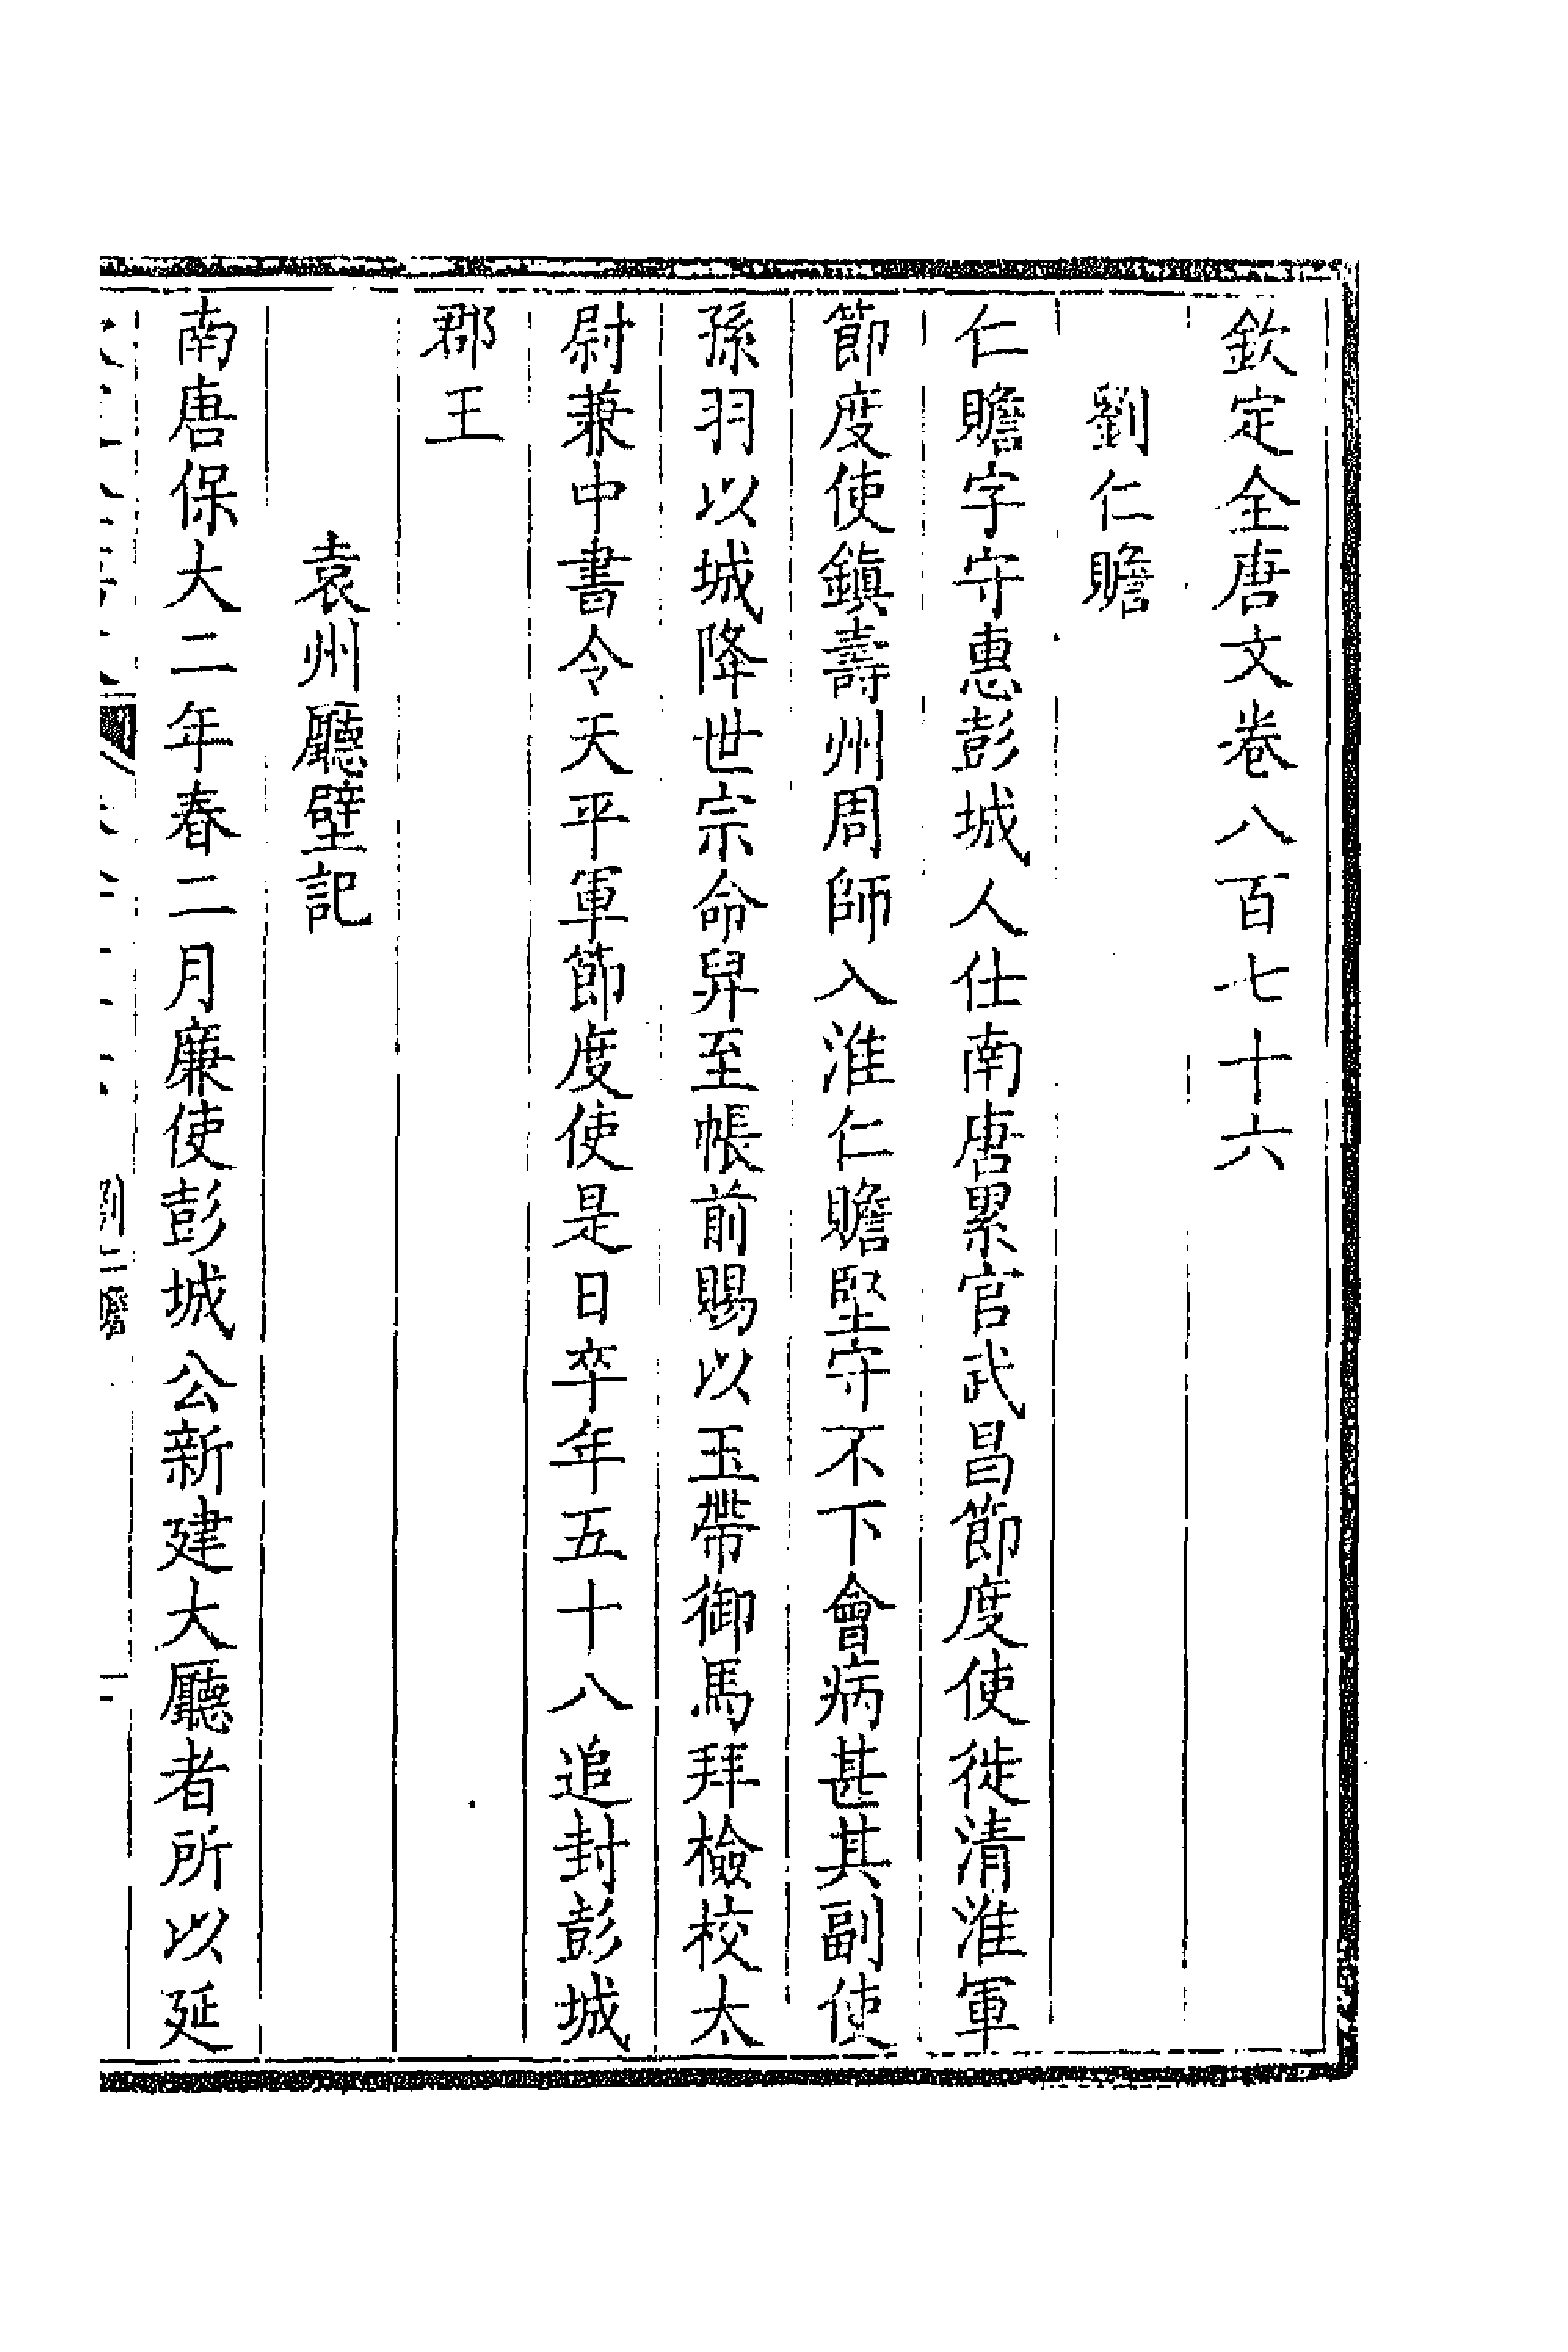 欽定全唐文卷八百七十六
劉仁贍
仁贍字守惠彭城人仕南唐累官武昌節度使徙清淮軍
節度使鎭壽州周師入淮仁贍堅守不下會病甚其副使
孫羽以城降世宗命舁至帳前賜以玉帶御馬拜檢校太
尉兼中書令天平軍節度使是日卒年五十八追封彭城
郡王
袁州廳壁記
南唐保大二年春二月廉使彭城公新建大廳者所以延